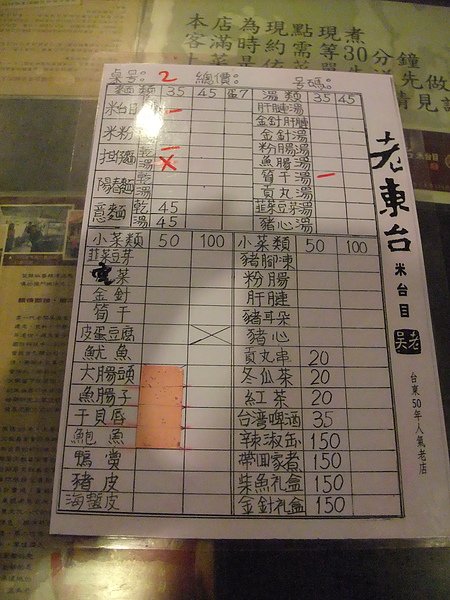 本店為現點現煮
客滿時約需等30分鐘
桌号: 2 總價: 号碼:
麵類 35 45 蛋7 湯類 35 45
米台目 肝腱湯
金針肝腱
米粉 金針湯
粉腸湯
乾 魚腸湯
湯 筍干湯
陽春麵 乾 貢丸湯
湯 韮菜豆芽湯
意麵 乾 45
湯 45 豬心湯
小菜類 50 100 小菜類 50 100
韮菜豆芽 豬腳凍
菜 粉腸
金針 肝腱
筍干 豬耳朵
皮蛋豆腐 豬心
魷魚 貢丸串 20
大腸頭 冬瓜茶 20
魚腸子 紅茶 20
干貝唇 台湾啤酒 35
鮑魚 辣淑缶 150
鴨賞 帶回家煮 150
豬皮 柴魚礼盒 150
海蜇皮 金針礼盒 150
老東台
米台目
老吳
台東50年人氣老店